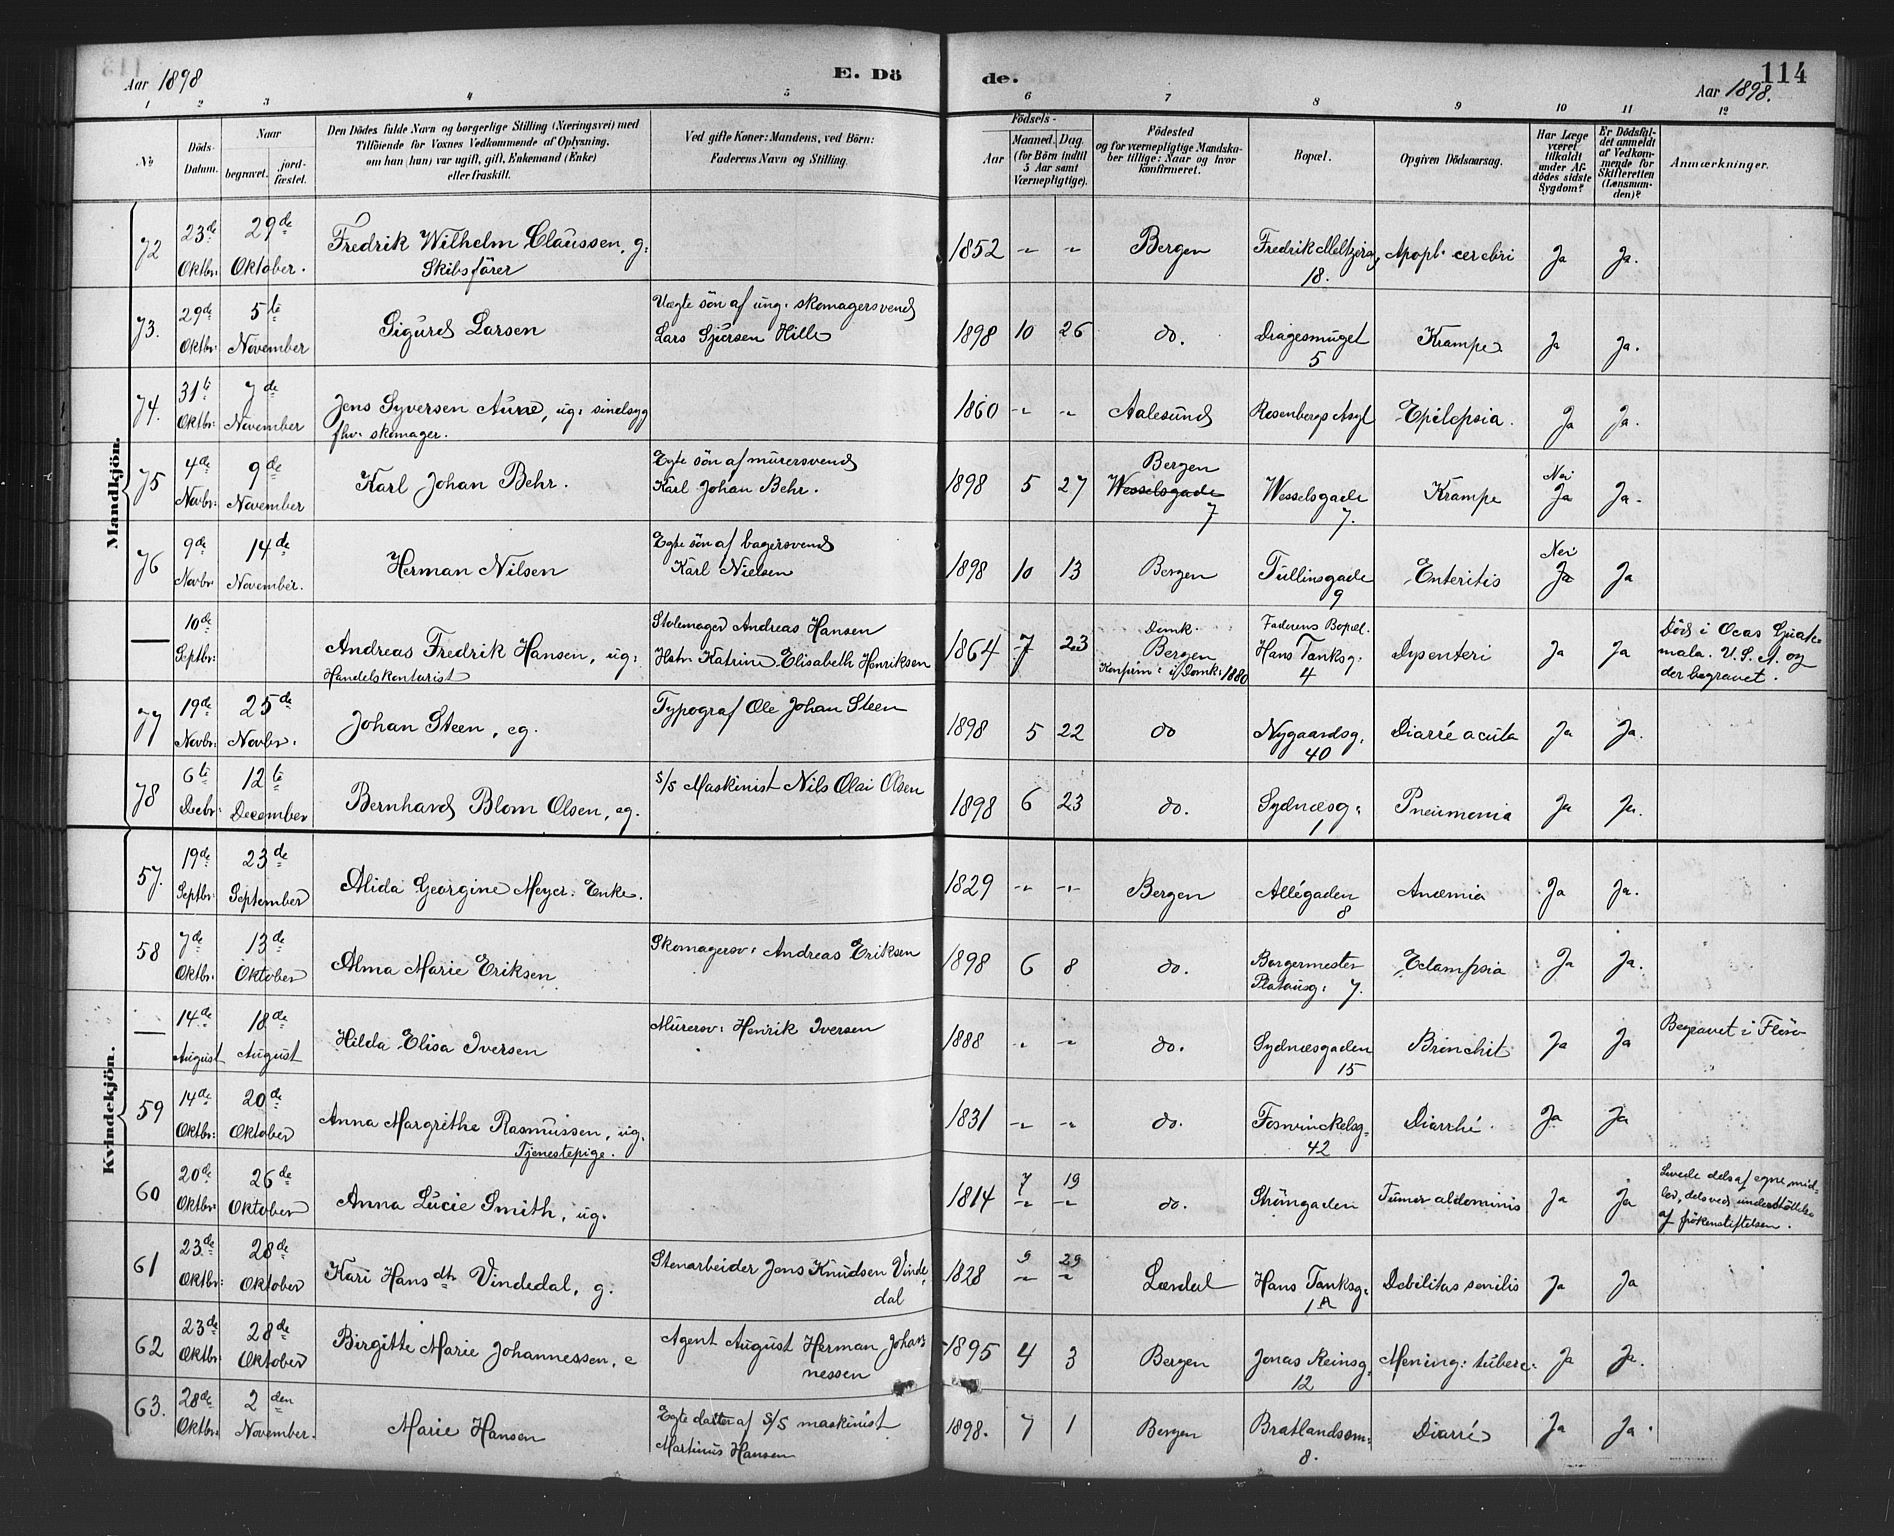 Aar 1898
E. Dö
de.
114
Aar 1898.
1 2 3 4 5 6 7 8 9 10 11 12
No
Döds-
Datum.
Naar
begravet.
jord-
fæstet.
Den Dödes fulde Navn og borgerlige Stilling (Næringsvei) med
Tilföiende for Voxnes Vedkommende af Oplysning,
om han (hun) var ugift, gift, Enkemand (Enke)
eller fraskilt.
Ved gifte Koner: Mandens, ved Börn:
Faderens Navn og Stilling.
Födsels-
Aar
Maaned. Dag.
(for Börn indtil
5 Aar samt
Værnepligtige).
Födested
og for værnepligtige Mandska-
ber tillige: Naar og hvor
konfirmeret.
Bopæl.
Opgiven Dödsaarsag.
Har Læge
været
tilkaldt
under Af-
dödes sidste
Sygdom?
Er Dödsfal-
det anmeldt
af Vedkom-
mende for
Skifteretten
(Lensman-
den)?
Anmærkninger.
Mandkjön.
72 23de Oktbr: 29de Oktober. Fredrik Wilhelm Claussen, g: 1852 " " Bergen Fredrik Meltzersg Apopl. cerebri Ja Ja.
Skibsförer 18.
73. 29de Oktbr: 5te November Sigurd Larsen Uægte sön af ung: skomagersvend
Lars Sjursen Hille 1898 10 26 do. Dragesmuget Krampe Ja Ja.
5
74. 31te Oktbr: 7de November Jens Syversen Aurre, ug: sindsyg 1860 " " Aalesund Rosenbergs Asyl Epilepsia. Ja Ja.
fhv: skomager.
75 4de Novbr: 9de November Karl Johan Behr. Egte sön af murersvend
Karl Johan Behr. 1898 5 27 Bergen Wesselsgade Krampe Nei Ja Ja.
Wesselsgade 7 7.
76 9de Novbr 14de November. Herman Nilsen Egte sön af bagersvend
Karl Nielsen 1898 10 13 Bergen Tullinsgade Enteritis Nei Ja Ja
9
— 10de Septbr: Andreas Fredrik Hansen, ug: Stolemager Andreas Hansen
Handelskontorist Hstr Katrine Elisabeth Henriksen 1864 7 23 Domk. Bergen Faderens Bopæl. Hans Tanksg: Dysenteri Ja Ja Död i Ocas Guate
Konfirm: i Domk: 1880 4 mala. U.S.A. og
der begravet.
77 19de Novbr: 25de Novbr. Johan Steen, eg. Typograf Ole Johan Steen 1898 5 22 do Nygaardsg. Diarré acuta Ja Ja.
40
78 6te Decbr: 12te December Bernhard Blom Olsen, eg. S/S Maskinist Nils Olai Olsen 1898 6 23 do. Sydnæsg: Pneumonia Ja Ja.
1
Kvindekjön.
57. 19de Septbr: 23de September Alida Georgine Meyer. Enke. 1829 " " Bergen Allégaden Anæmia Ja Ja.
8
58 7de Oktbr: 13de Oktober Alma Marie Eriksen Skomagersv: Andreas Eriksen 1898 6 8 do. Borgermester Eclampsia Ja Ja.
Platousg: 7.
— 14de August 18de August Hilda Elisa Iversen Murersv: Henrik Iversen 1888 " " do. Sydnæsgaden Bronchit Ja Ja Begravet i Florö
15
59 14de Oktbr: 20de Oktober Anna Margrethe Rasmussen, ug. 1831 " " do. Foswinckelsg: Diarrhé. Ja Ja
Tjenestepige. 42
60 20de Oktbr: 26de Oktober Anna Lucie Smith, ug. 1814 7 19 do. Strömgaden Tumor abdominis Ja Ja Levede dels af egne mid-
ler, dels ved understöttelse
af frökenstiftelsen.
61 23de Oktbr: 28de Oktober Kari Hansdtr Vindedal, g. Stenarbeider Jens Knudsen Vinde
dal 1828 9 29 Lærdal Hans Tanksg: Debilitas senilis Ja Ja
1A
62 23de Oktbr. 28de Oktober Birgitte Marie Johannessen, e Agent August Herman Johan
nessen 1895 4 3 Bergen Jonas Reinsg: Mening: tuberc: Ja Ja.
12
63. 28de Oktbr: 2den November. Marie Hansen Egte datter af S/S maskinist
Martinus Hansen 1898. 7 1 Bergen Bratlandsm: Diarré Ja Ja.
8.